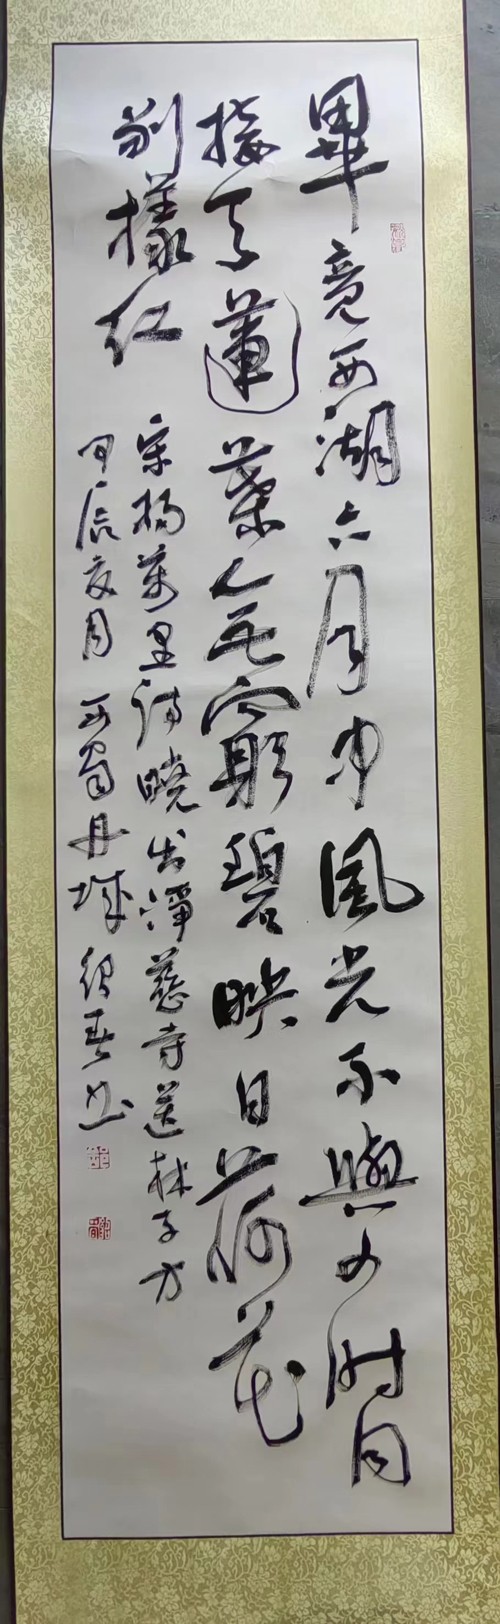 畢竟西湖六月中風光不與四时同
接天蓮葉無窮碧映日荷花
别樣红
宋楊萬里詩曉出淨慈寺送林子方
甲辰夏月西蜀丹城书